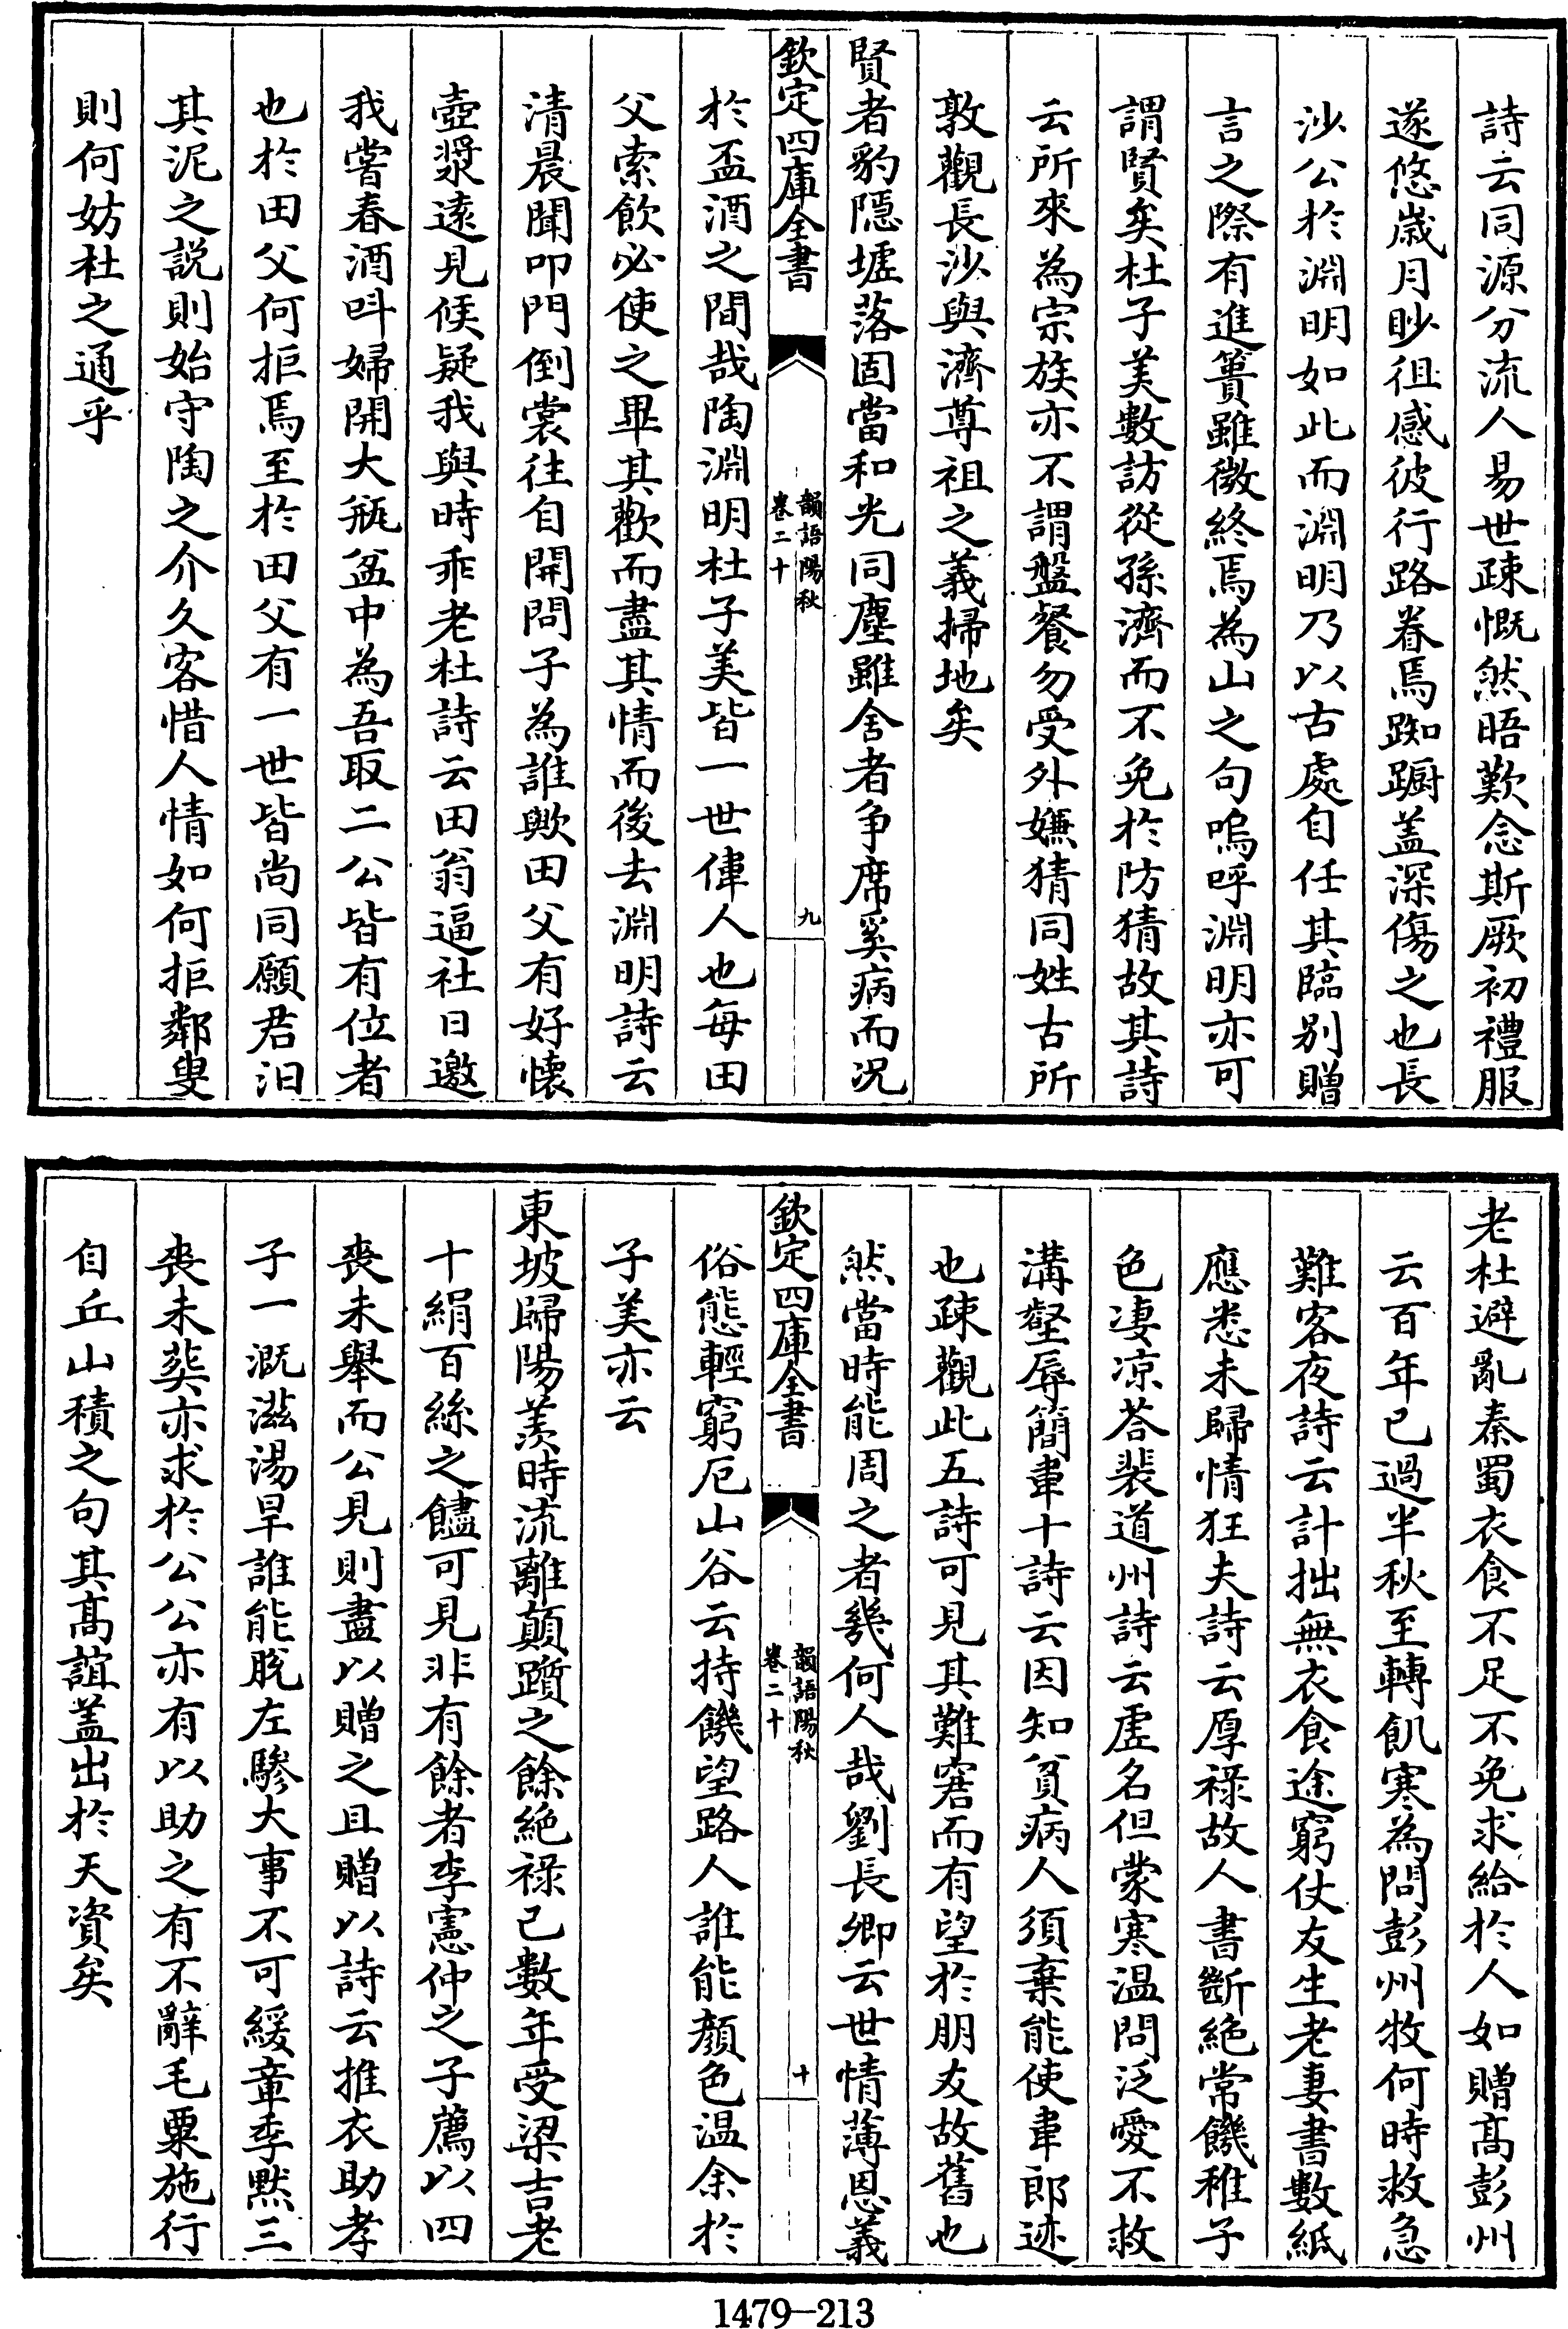 詩云同源分流人易世疎慨然晤歎念斯厥初禮服
遂悠歲月眇徂感彼行路眷焉踟蹰盖深傷之也長
沙公於淵明如此而淵明乃以古處自任其臨别贈
言之際有進簣雖微終焉為山之句嗚呼淵明亦可
謂賢矣杜子美數訪從孫濟而不免於防猜故其詩
云所來為宗族亦不謂盤餐勿受外嫌猜同姓古所
敦觀長沙與濟尊祖之義掃地矣
賢者豹隱墟落固當和光同塵雖舍者争席奚病而况
欽定四庫全書
韻語陽秋
卷二十
九
於盃酒之間哉陶淵明杜子美皆一世偉人也每田
父索飲必使之畢其歡而盡其情而後去淵明詩云
清晨聞叩門倒裳往自開問子為誰歟田父有好懷
壺漿遠見候疑我與時乖老杜詩云田翁逼社日邀
我嘗春酒呌婦開大瓶盆中為吾取二公皆有位者
也於田父何拒焉至於田父有一世皆尚同願君汩
其泥之説則始守陶之介久客惜人情如何拒鄰叟
則何妨杜之通乎
老杜避亂秦蜀衣食不足不免求給於人如贈髙彭州
云百年已過半秋至轉飢寒為問彭州牧何時救急
難客夜詩云計拙無衣食途窮仗友生老妻書數紙
應悉未歸情狂夫詩云厚禄故人書斷絶常饑稚子
色凄凉荅裴道州詩云虚名但蒙寒温問泛愛不救
溝壑辱簡韋十詩云因知貧病人須棄能使韋郎迹
也疎觀此五詩可見其難窘而有望於朋友故舊也
然當時能周之者幾何人哉劉長卿云世情薄恩義
欽定四庫全書
韻語陽秋
卷二十
十
俗態輕窮厄山谷云持饑望路人誰能顔色温余於
子美亦云
東坡歸陽羨時流離顛躓之餘絶禄已數年受梁吉老
十絹百絲之饐可見非有餘者李憲仲之子薦以四
喪未舉而公見則盡以贈之且贈以詩云推衣助孝
子一溉滋湯旱誰能脫左驂大事不可緩章季默三
喪未葬亦求於公公亦有以助之有不辭毛粟施行
自丘山積之句其髙誼盖出於天資矣
1479—213